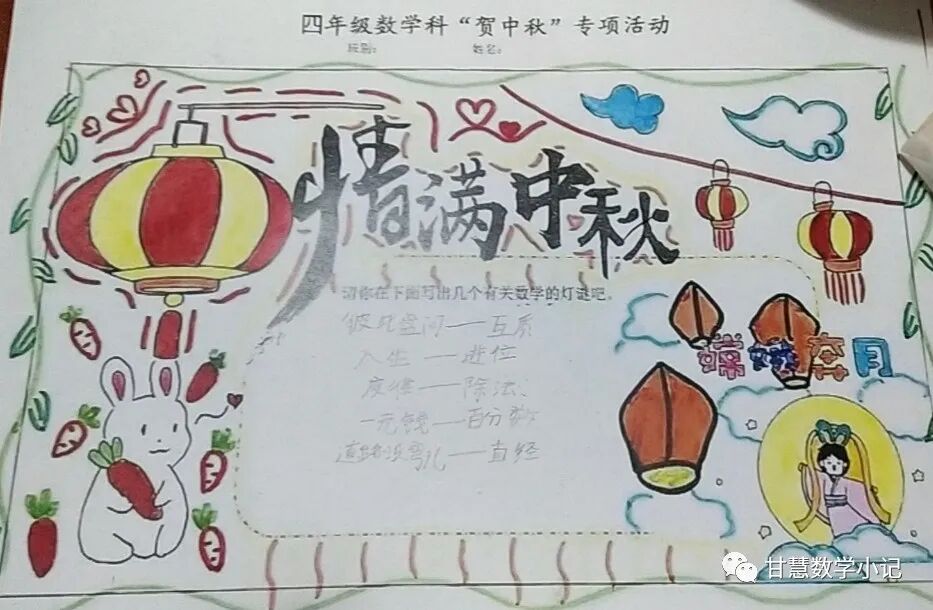 四年级数学科“贺中秋”专项活动
班别: 姓名:
情满中秋
请你在下面写出几个有关数学的灯谜吧。
彼此盘问——互质
入坐——进位
废律——除法
一元钱——百分数
道路没弯儿——直径
嫦娥奔月
甘慧数学小记